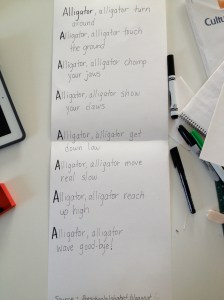 Alligator, alligator turn
around
Alligator, alligator touch
the ground
Alligator, alligator chomp
your jaws
Alligator, alligator show
your claws
Alligator, alligator get
down low
Alligator, alligator move
real slow
Alligator, alligator reach
up high
Alligator, alligator
wave good-bye!
Source: